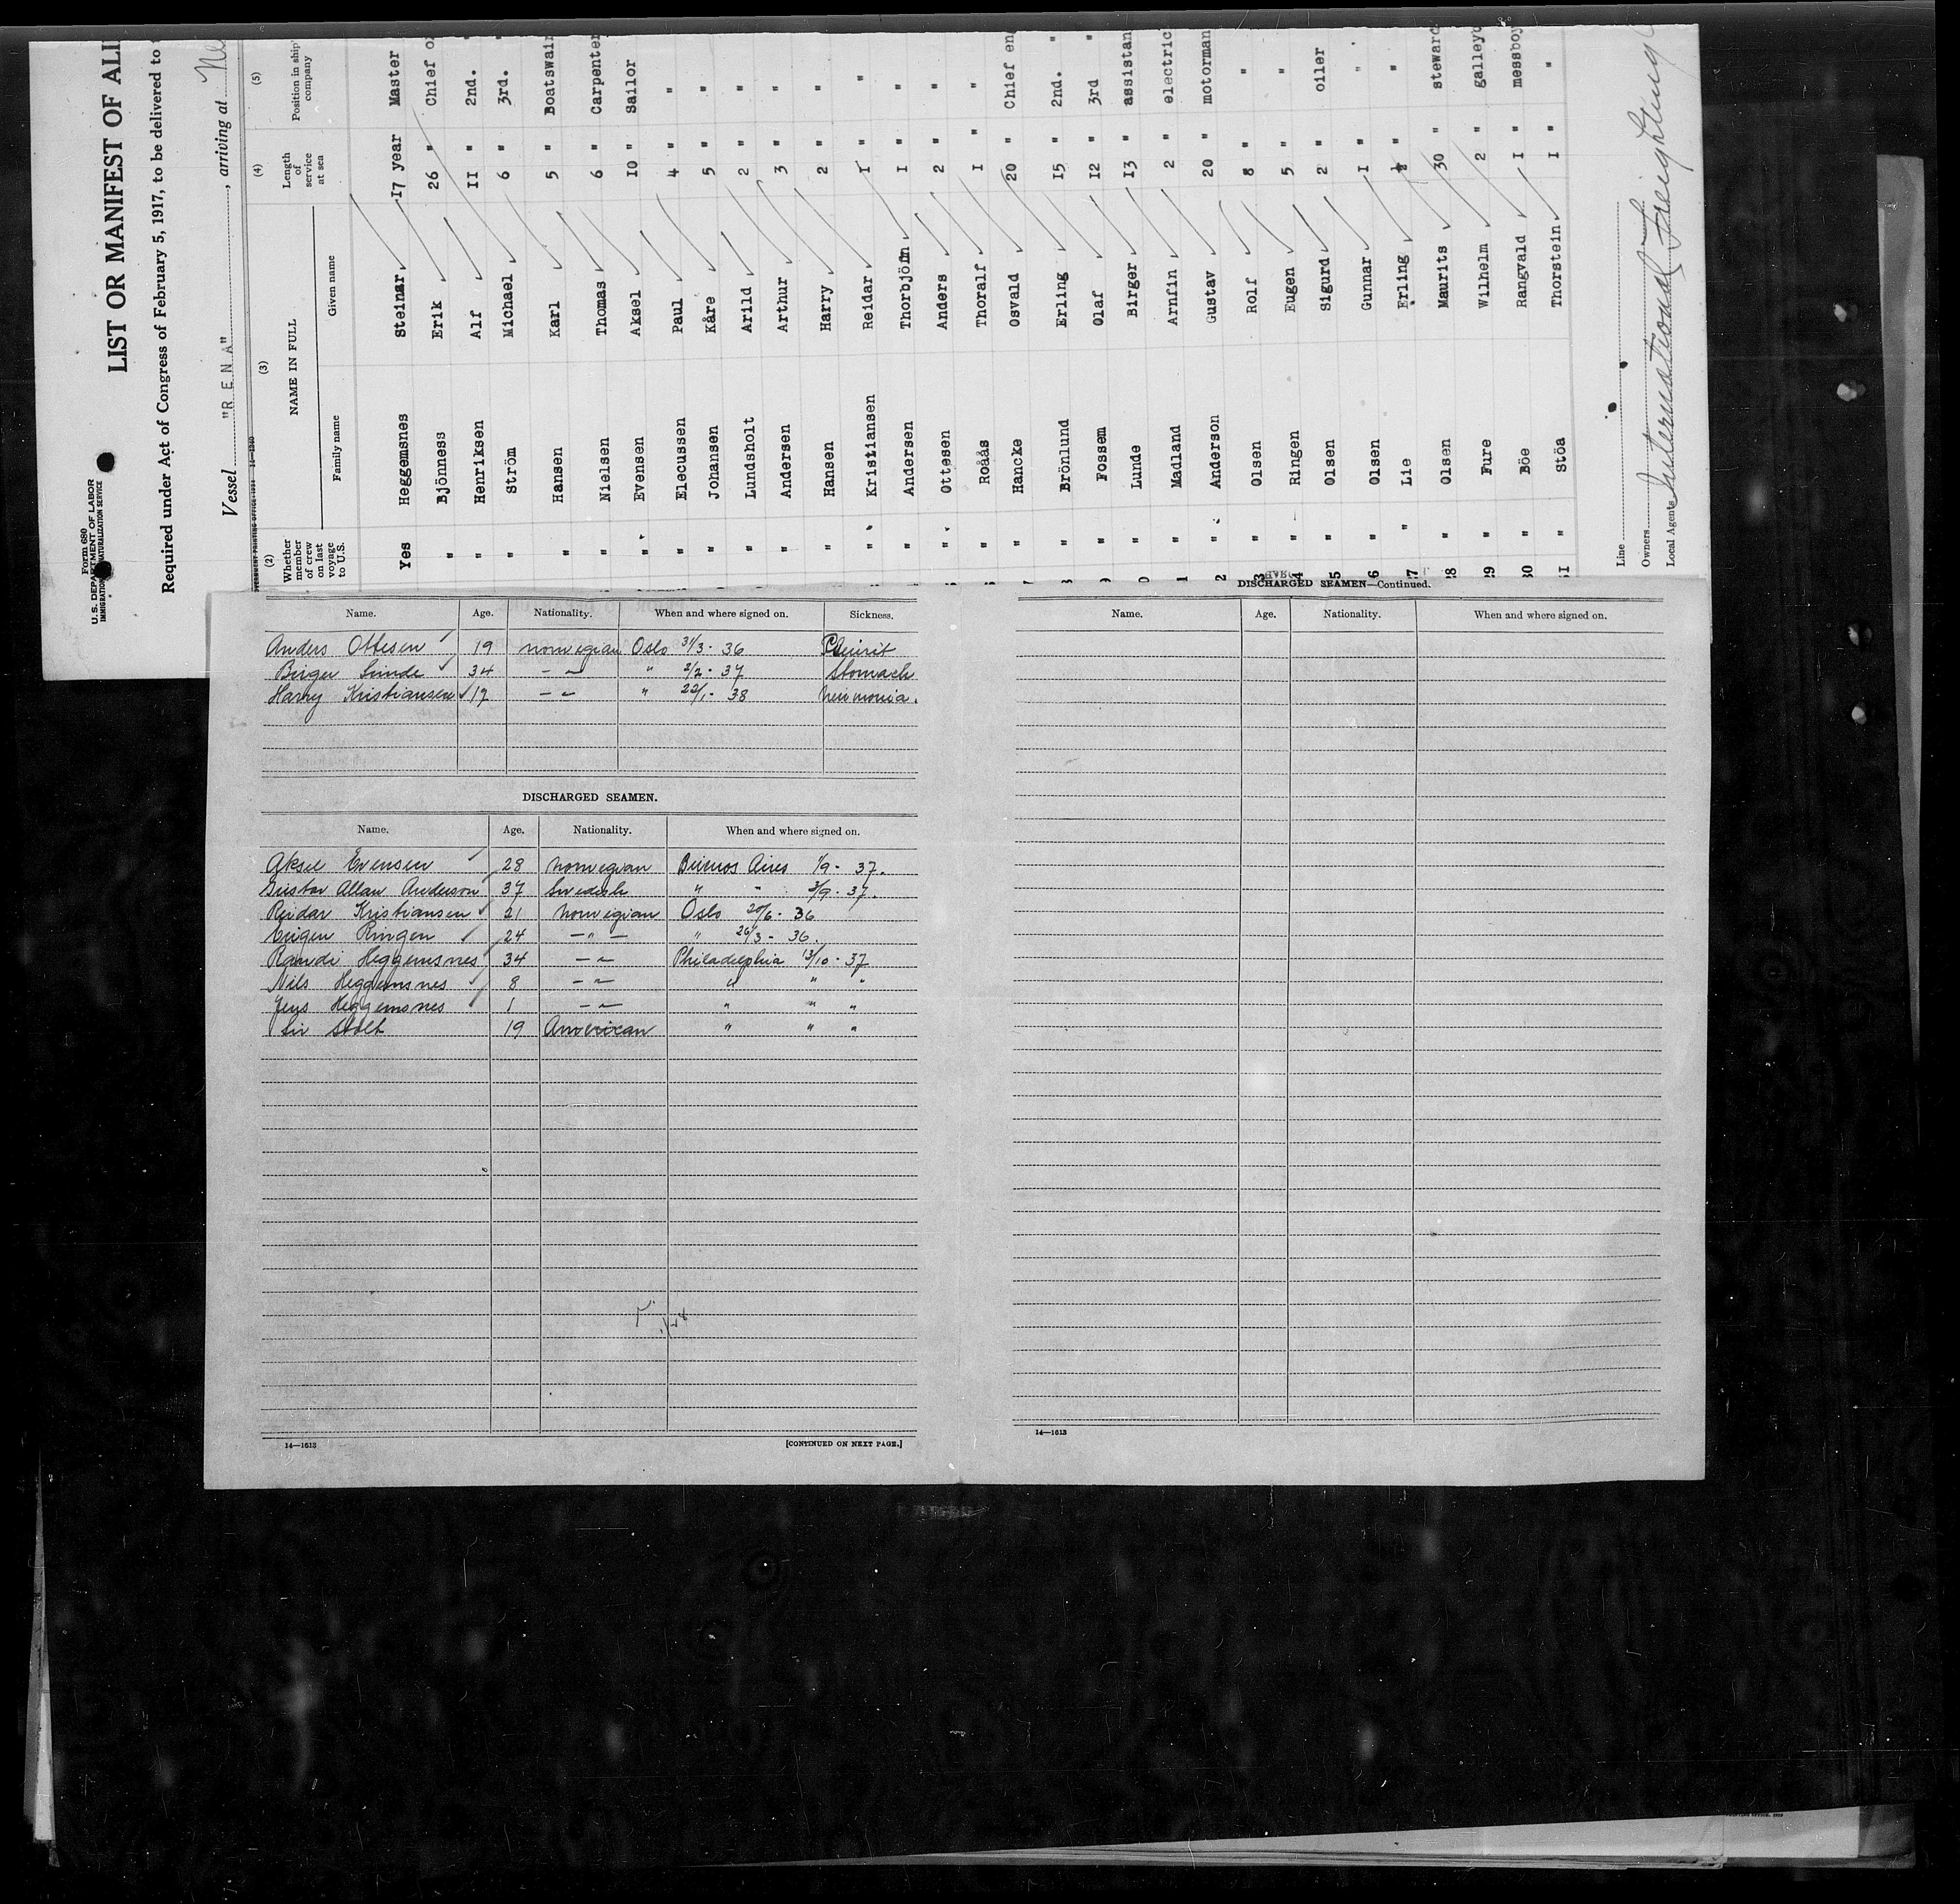 Form 680
U.S. DEPARTMENT OF LABOR
IMMIGRATION NATURALIZATION SERVICE
LIST OR MANIFEST OF ALI
Required under Act of Congress of February 5, 1917, to be delivered to
Vessel "RENA", arriving at
(2) (3) (4) (5)
Whether member of crew on last voyage to U.S. NAME IN FULL Length of service at sea Position in ship company
Family name Given name
Yes Heggemsnes Steinar 17 year Master
" Bjönness Erik 26 " Chief o
" Henriksen Alf 11 " 2nd. "
" Ström Michael 6 " 3rd. "
" Hansen Karl 5 " Boatswain
" Nielsen Thomas 6 " Carpenter
" Evensen Aksel 10 " Sailor
" Elecussen Paul 4 " "
" Johansen Kåre 5 " "
" Lundsholt Arild 2 " "
" Andersen Arthur 3 " "
" Hansen Harry 2 " "
" Kristiansen Reidar 1 " "
" Andersen Thorbjörn 1 " "
" Ottesen Anders 2 " "
" Roåås Thoralf 1 " "
" Hancke Osvald 20 " Chief en
8 " Brönlund Erling 15 " 2nd. "
9 " Fossem Olaf 12 " 3rd "
0 " Lunde Birger 13 " assistan
1 " Madland Arnfin 2 " electric
2 " Anderson Gustav 20 " motorman
3 " Olsen Rolf 8 " "
4 " Ringen Eugen 5 " "
5 " Olsen Sigurd 2 " oiler
6 " Olsen Gunnar 1 " "
7 " Lie Erling ½ " "
8 " Olsen Maurits 30 " steward
29 " Fure Wilhelm 2 " galleyb
30 " Böe Rangvald 1 " messboy
31 " Stöa Thorstein 1 " "
Line
Owners
Local Agents International Freighting
Name. Age. Nationality. When and where signed on. Sickness.
Anders Ottesen 19 Norwegian Oslo 31/3 - 36 Pleurit
Birger Lunde 34 - " - " 2/2 - 37 Stomach
Harry Kristiansen 19 - " - " 22/1 - 38
DISCHARGED SEAMEN.
Name. Age. Nationality. When and where signed on.
Aksel Evensen 28 Norwegian Buenos Aires 1/9 - 37.
Gustav Allan Anderson 37 Swedish " " 3/9 - 37.
Reidar Kristiansen 21 Norwegian Oslo 20/6 - 36
Eugen Ringen 24 - " - " 26/3 - 36.
Randi Heggemsnes 34 - " - Philadelphia 13/10 - 37
Nils Heggemsnes 8 - " - " " "
Jens Heggemsnes 1 - " - " " "
Stolt 19 American " " "
14—1613 [CONTINUED ON NEXT PAGE.]
DISCHARGED SEAMEN—Continued.
Name. Age. Nationality. When and where signed on.
14—1613